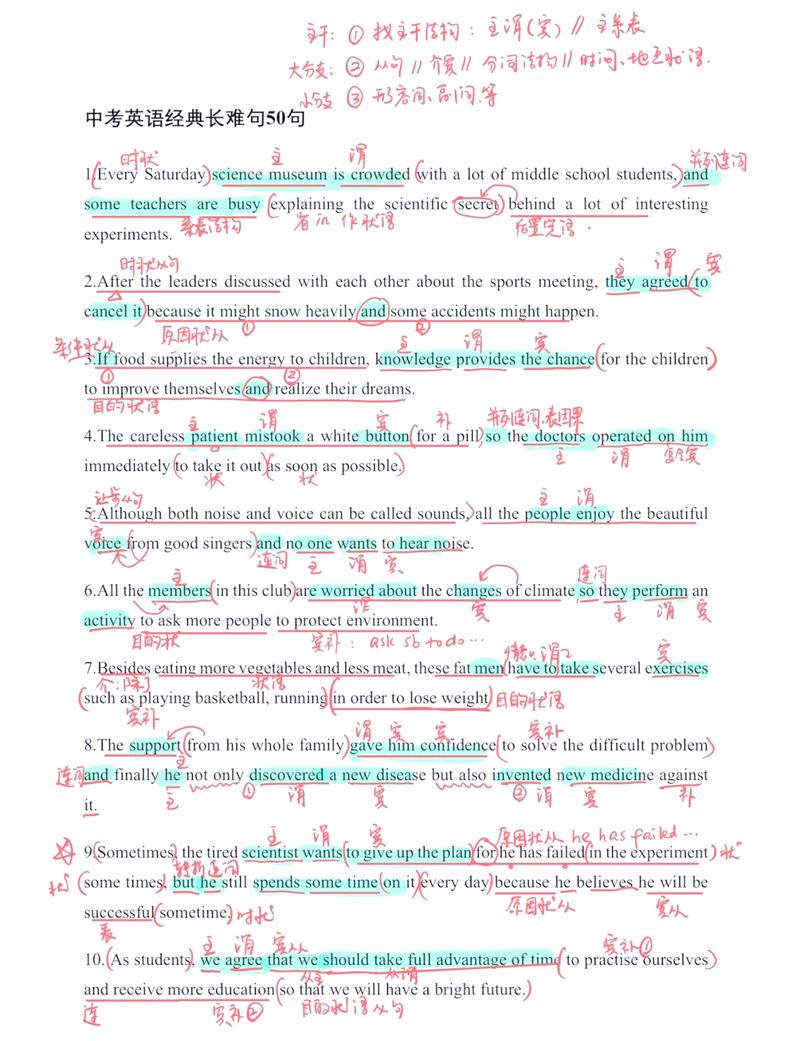 主干: ① 找主干结构: 主谓(宾) // 主系表
大分支: ② 从句 // 介宾 // 分词结构 // 时间、地点状语.
小分支 ③ 形容词、副词.等
中考英语经典长难句50句
时状 主 谓 并列连词
1.(Every Saturday) science museum is crowded (with a lot of middle school students,) and
some teachers are busy (explaining the scientific (secret) behind a lot of interesting
系表结构 省in 作状语 后置定语.
experiments.
时状从句 主 谓 宾
2.After the leaders discussed with each other about the sports meeting, they agreed (to
cancel it) because it might snow heavily and some accidents might happen.
原因状从 ① ②
条件状从 主 谓 宾
3.If food supplies the energy to children, knowledge provides the chance (for the children)
① ②
to improve themselves and realize their dreams.
目的状语
主 谓 宾 补 并列连词,表因果
4.The careless patient mistook a white button (for a pill) so the doctors operated on him
主 谓 宾
immediately (to take it out) (as soon as possible.)
状 状
让步从句 主 谓
5.(Although both noise and voice can be called sounds,) all the people enjoy the beautiful
宾
voice (from good singers) and no one wants to hear noise.
连词 主 谓 宾
主 连词
6.All the members (in this club) are worried about the changes of climate so they perform an
谓 宾 主 谓 宾
activity to ask more people to protect environment.
目的状 宾补: ask sb to do...
谓 宾
7.Besides eating more vegetables and less meat, these fat men (have to take several exercises
介:除了 状语
(such as playing basketball, running) (in order to lose weight) 目的状语
宾补
谓 宾 宾 宾补
8.The support (from his whole family) gave him confidence (to solve the difficult problem)
主
连词 and finally he not only discovered a new disease but also invented new medicine against
主 ① 谓 宾 ② 谓 宾 补
it.
主 谓 宾 原因状从 he has failed...
9.(Sometimes), the tired scientist wants (to give up the plan) for he has failed (in the experiment) 状
转折连词
状 (some times), but he still spends some time (on it) (every day) because he believes he will be
原因状从 宾从
successful (sometime.) 时状
表
主 谓 宾从 宾补①
10.(As students), we agree that we should take full advantage of time (to practise ourselves)
从主 从谓
and receive more education (so that we will have a bright future.)
连 宾补② 目的状语从句